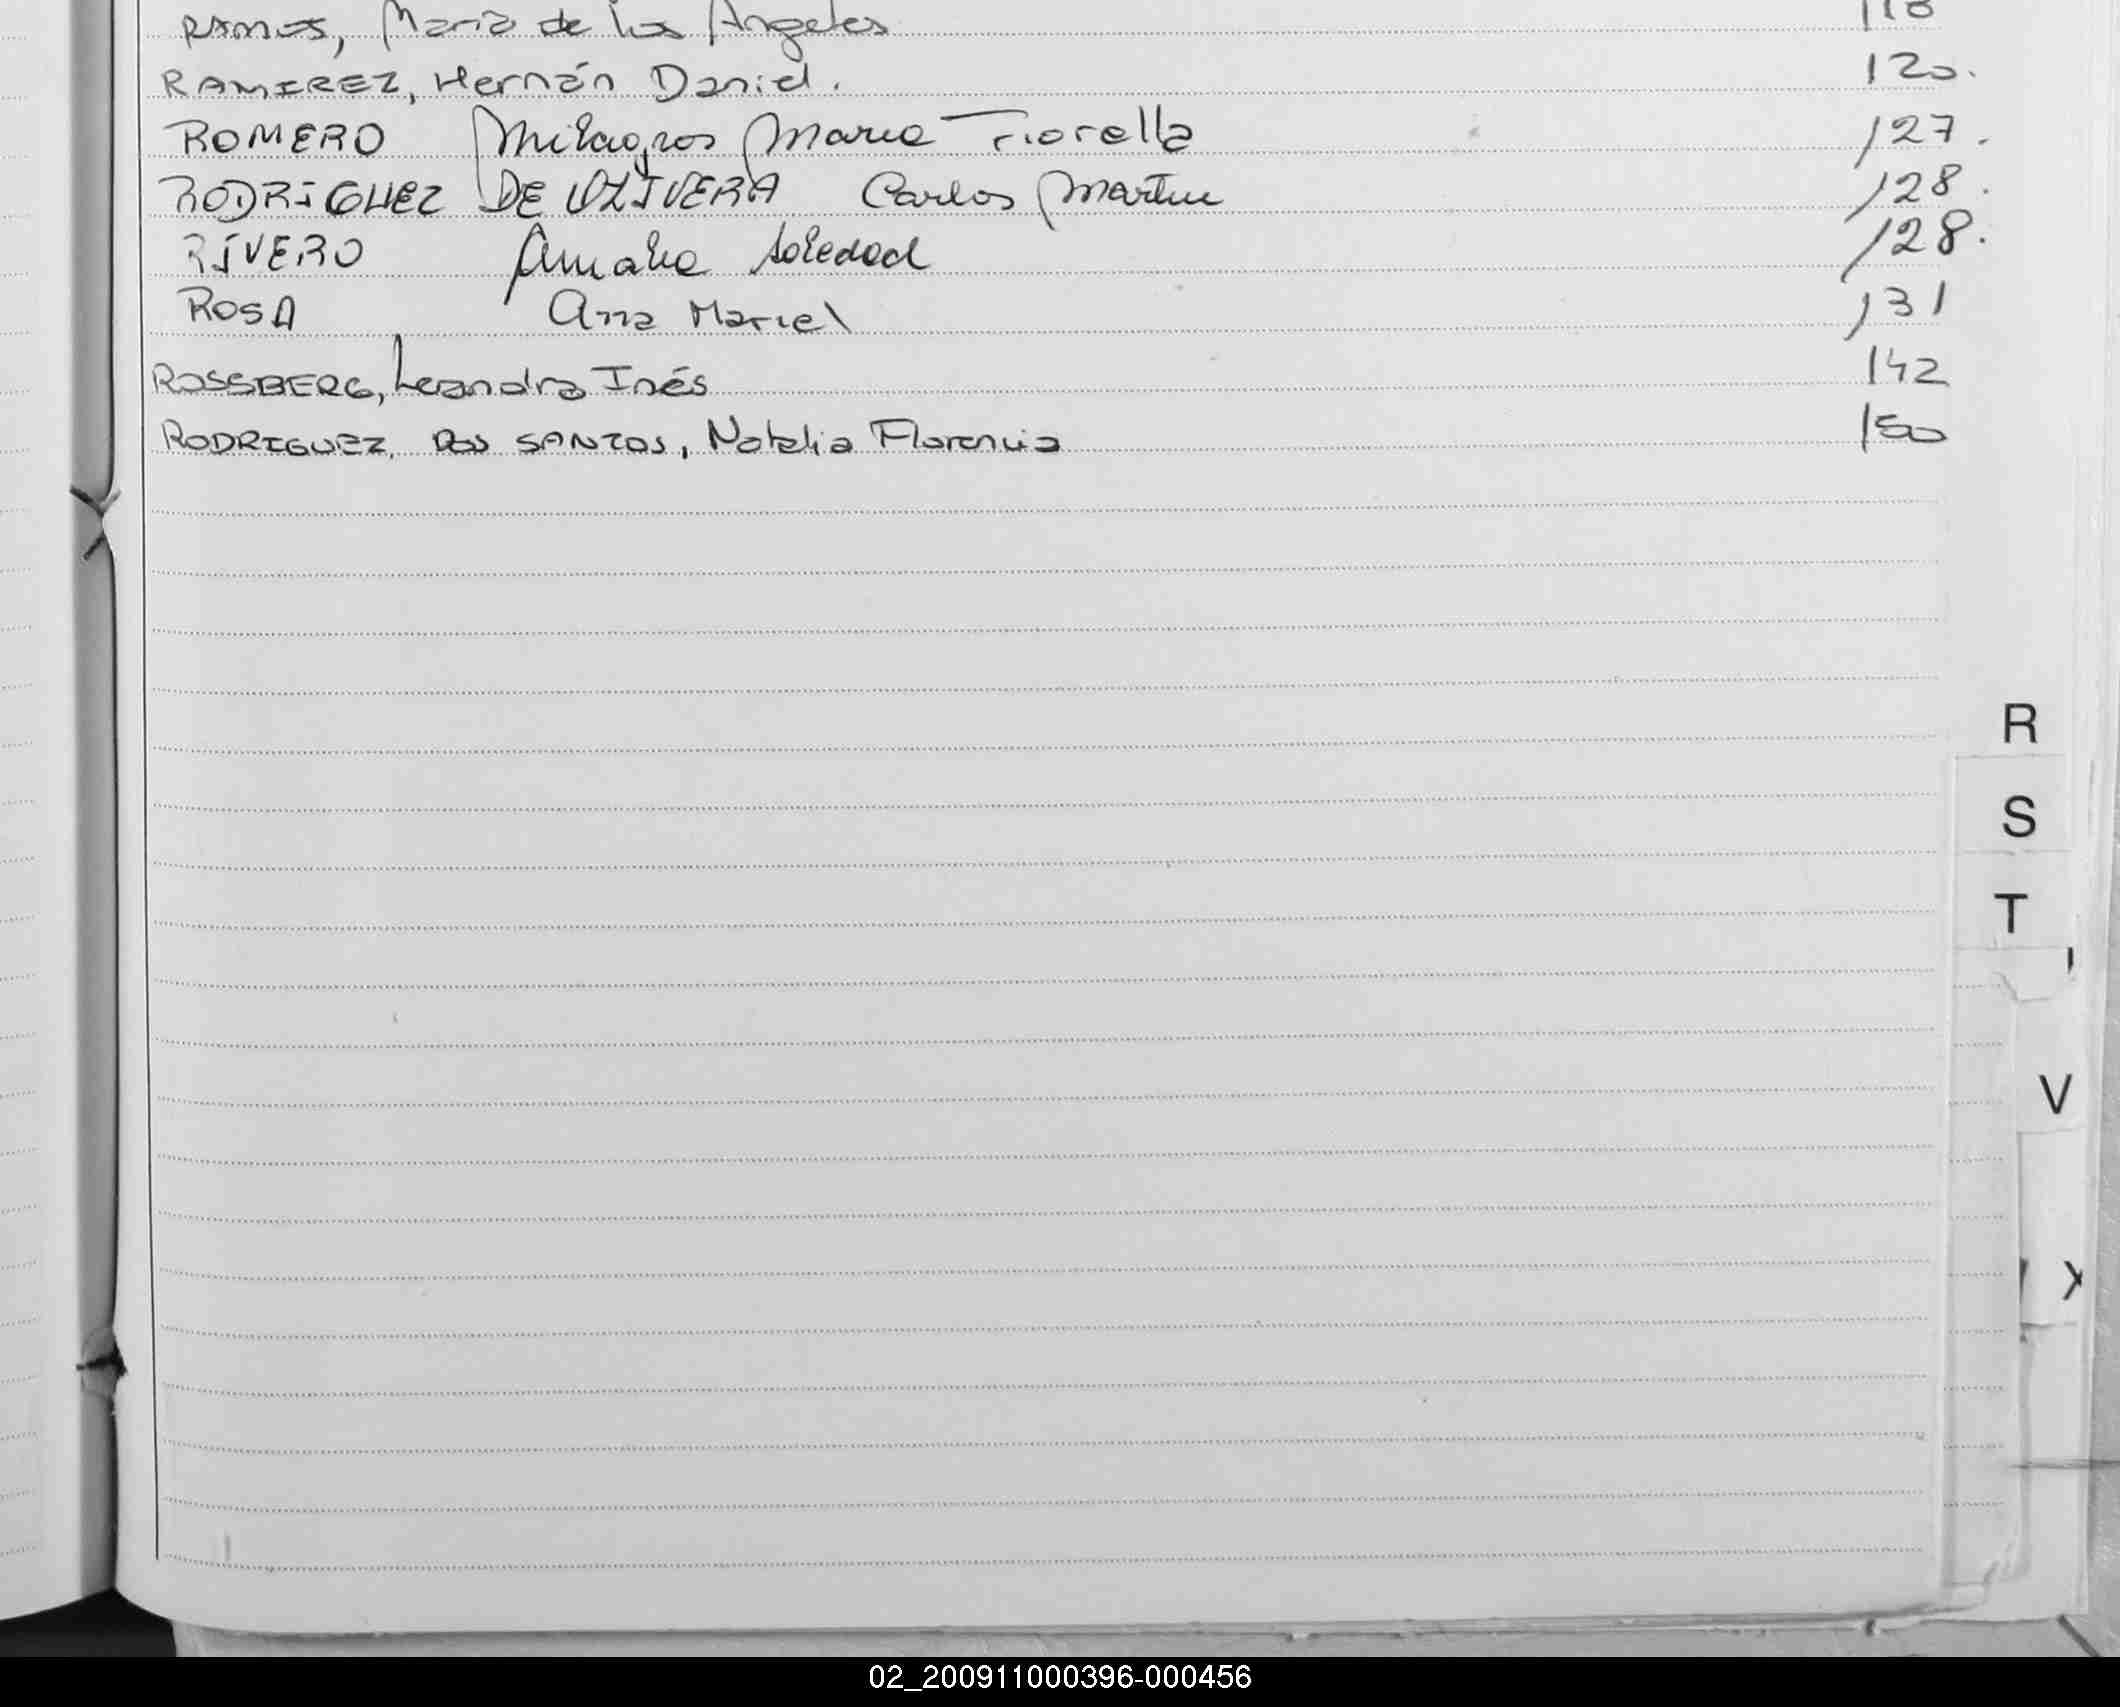 RAMOS, María de los Angeles 118
RAMIREZ, Hernán Daniel. 120.
ROMERO Milagros Maria Fiorella 127.
RODRiGUEZ DE OLIVERA Carlos Martin 128.
RIVERO Amalia Soledad 128.
ROSA Ana Mariel 131
ROSSBERG, Leandra Inés 142
RODRIGUEZ, DOS SANTOS, Natalia Florencia 150
R
S
T
V
X
02_200911000396-000456